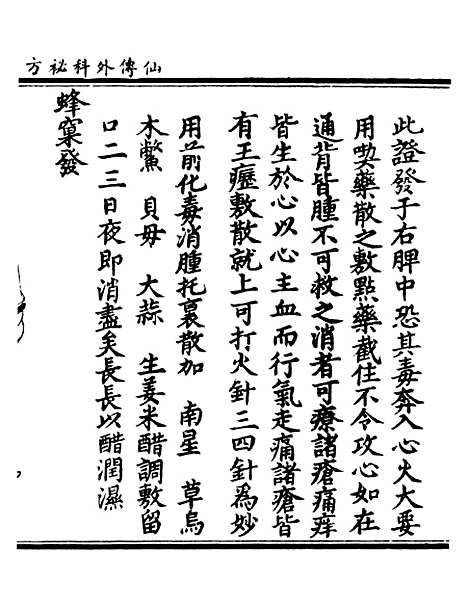 仙傳外科祕方
此證發于右脾中恐其毒奔入心火大要
用喫藥散之敷點藥截住不令攻心如在
通背皆腫不可救之消者可療諸瘡痛痒
皆生於心以心主血而行氣走痛諸瘡皆
有王癧敷散就上可打火針三四針爲妙
用前化毒消腫托裏散加 南星 草烏
木鱉 貝母 大蒜 生姜米醋調敷留
口二三日夜即消盡矣長長以醋潤濕
蜂窠發